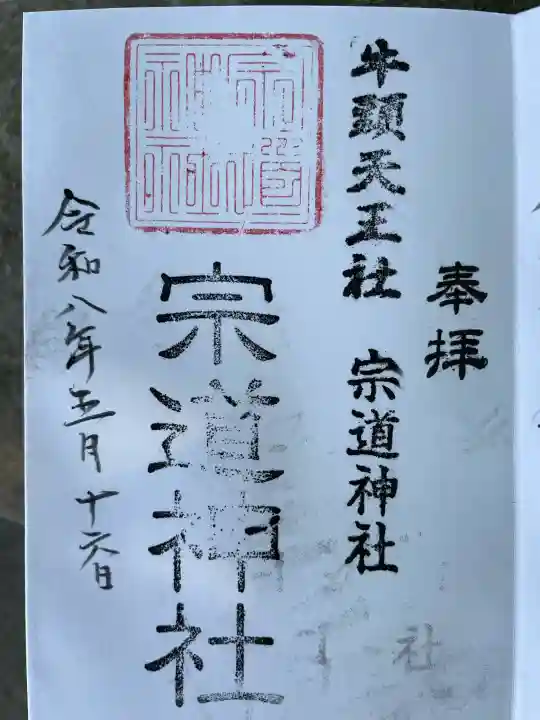 奉拝
牛頭天王社 宗道神社
宗道神社
令和八年五月十六日
社